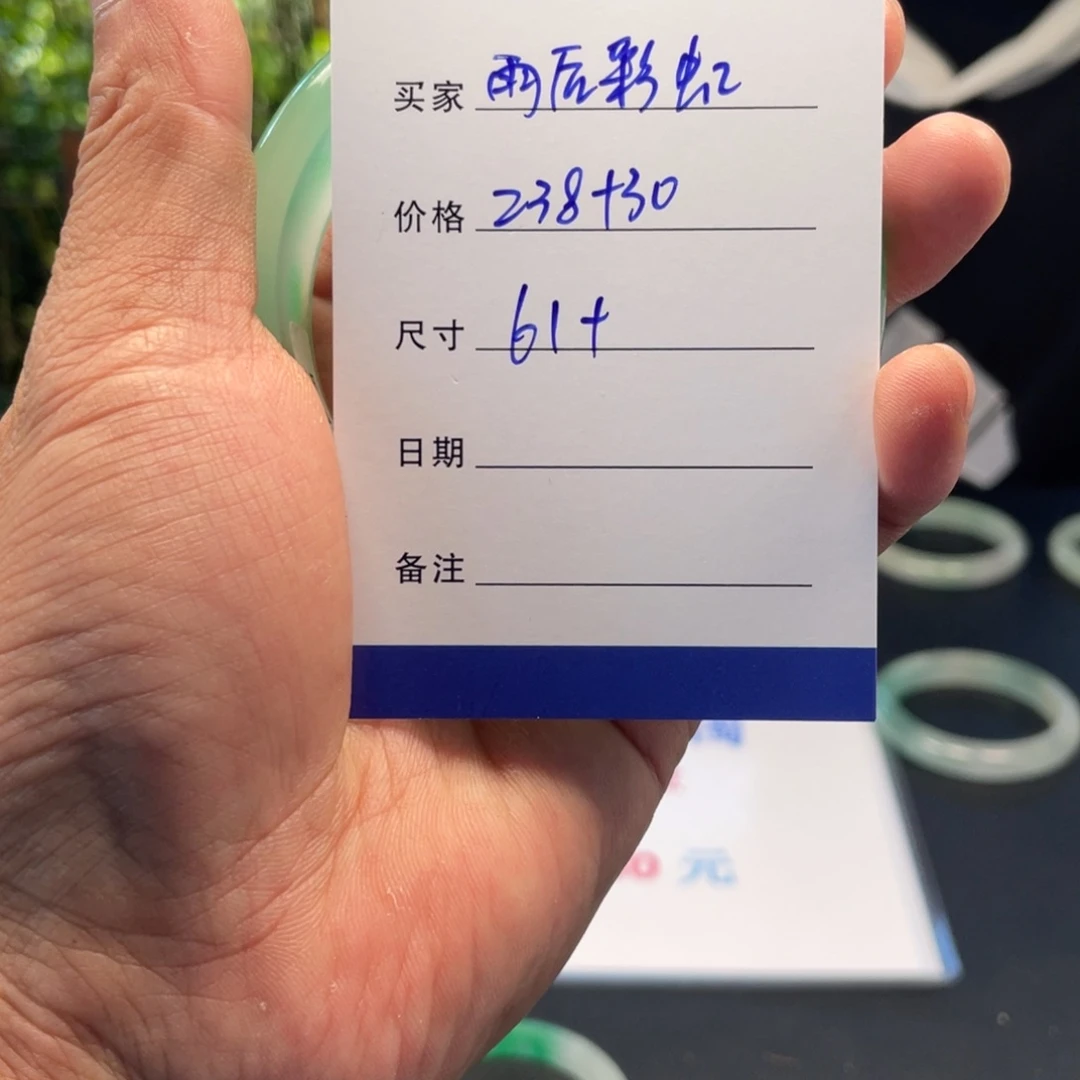 买家 雨后彩虹
价格 238+30
尺寸 61+
日期
备注
0 元